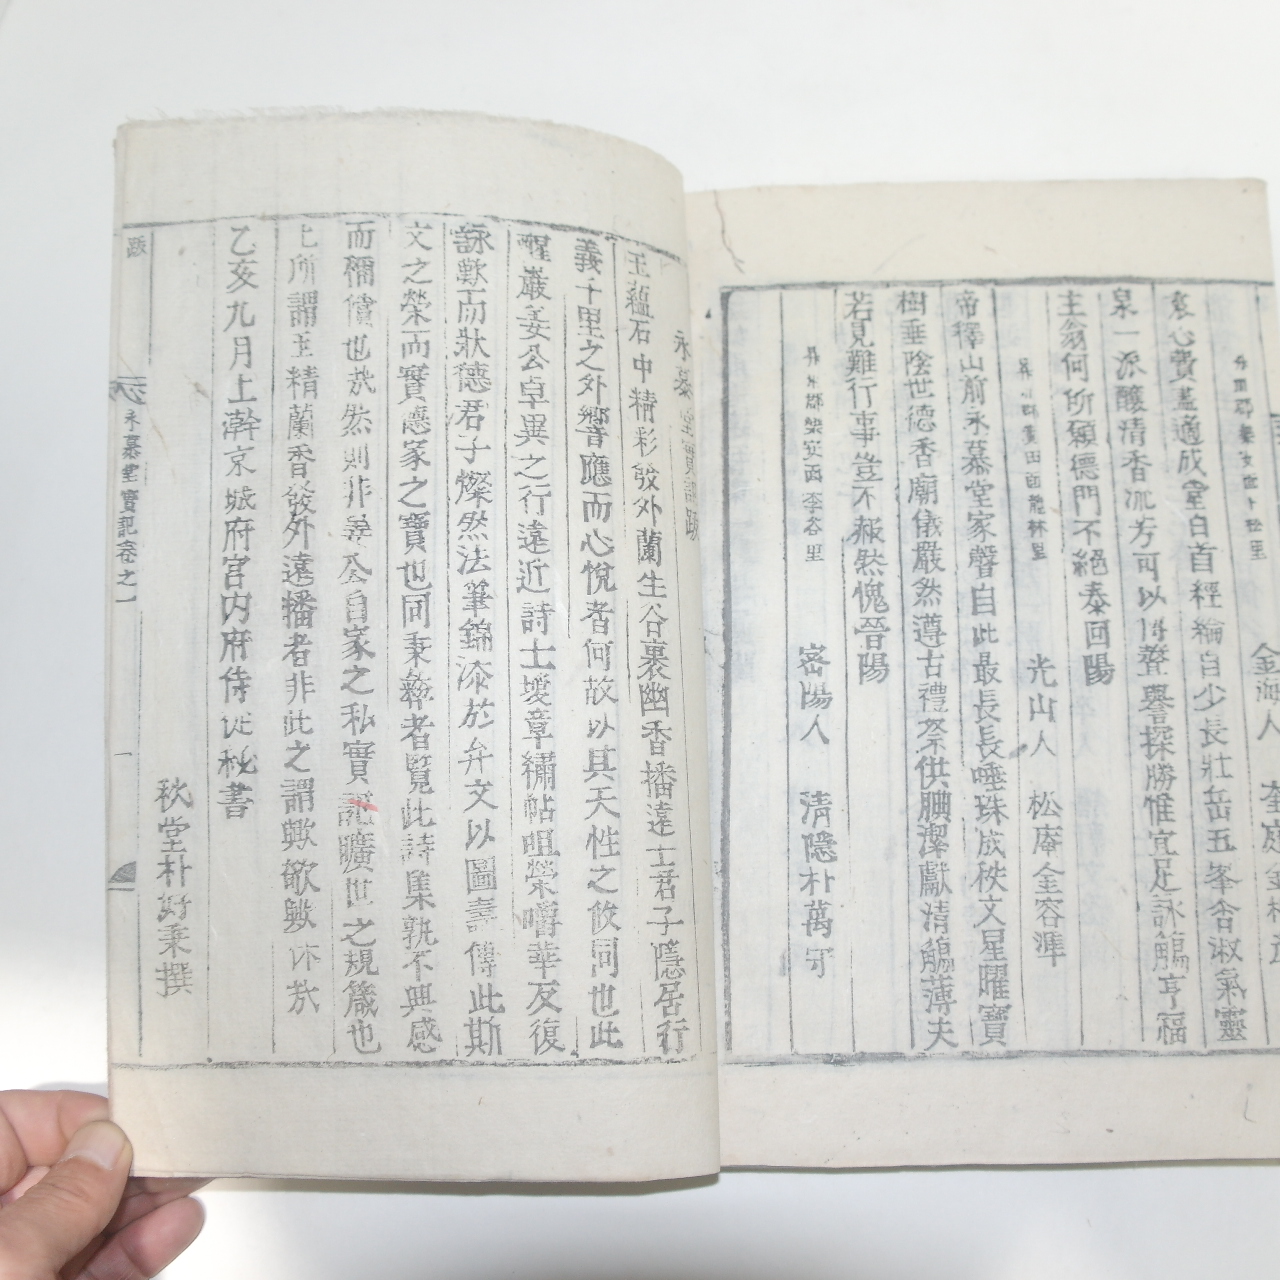 金海人
意心費盡適成堂白首經綸自少長壯岳五峯含淑氣靈
泉一派釀清香流芳可以傳聲譽探勝惟宜足詠觴亨福
主翁何所願德門不絕泰回陽
光山人 松庵金容準
帝釋山前永慕堂家聲自此最長長唾珠成秩文星曜寶
樹垂陰世德香廟儀嚴然遵古禮祭供腆潔獻清觴薄夫
若見難行事豈不赧然愧晉陽
昇州郡樂安面李谷里
密陽人 清隱朴萬守
永慕堂實記跋
玉蘊石中精彩發外蘭生谷裏幽香播遠士君子隱居行
義千里之外響應而心悅者何故以其天性之攸同也此
醒巖姜公卓異之行遠近詩士瓊章繡帖咀榮嚼華反復
詠歎而狀德君子燦然法筆錦添於弁文以圖壽傳此斯
文之榮而實德家之寶也同秉彝者覽此詩集孰不興感
而彌償也哉然則非姜公自家之私實記曠世之規箴也
上所謂玉精蘭香發外遠播者非此之謂歟欽歟休哉
乙亥九月上澣京城府宮內府侍從秘書
秋堂朴好秉撰
跋
永慕堂實記卷之一
一